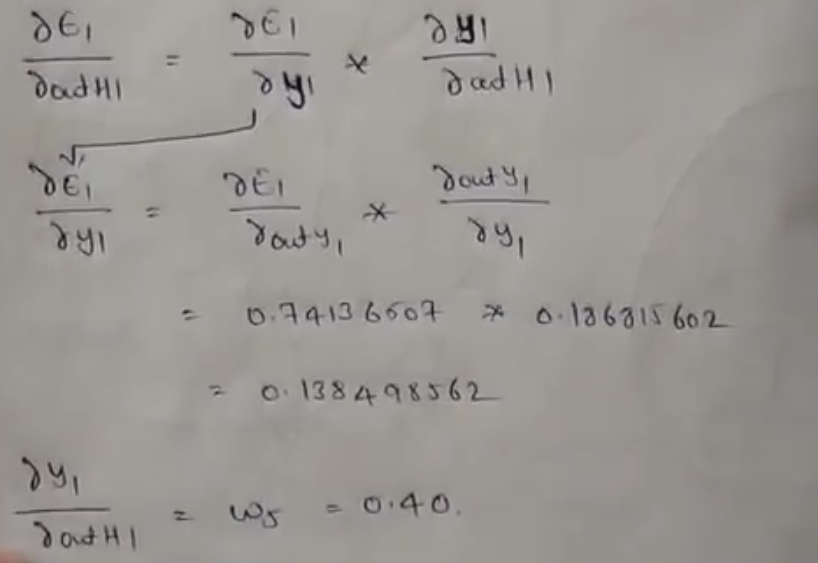 ∂E1/∂outH1 = ∂E1/∂y1 * ∂y1/∂outH1
∂E1/∂y1 = ∂E1/∂outy1 * ∂outy1/∂y1
= 0.74136507 * 0.186815602
= 0.138498562
∂y1/∂outH1 = w5 = 0.40.